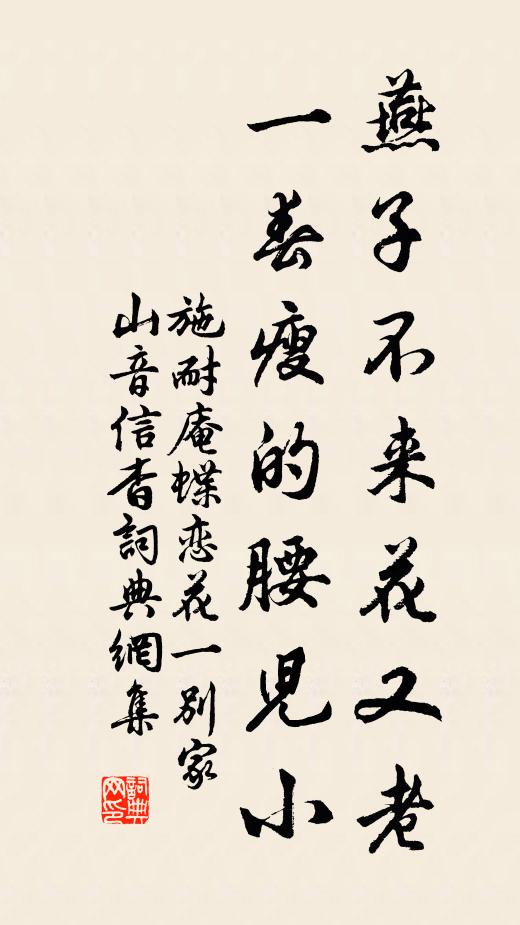 燕子不来花又老
一春瘦的腰児小
施耐庵蝶恋花一别家
山音信杳詞典網集
詞典
网印